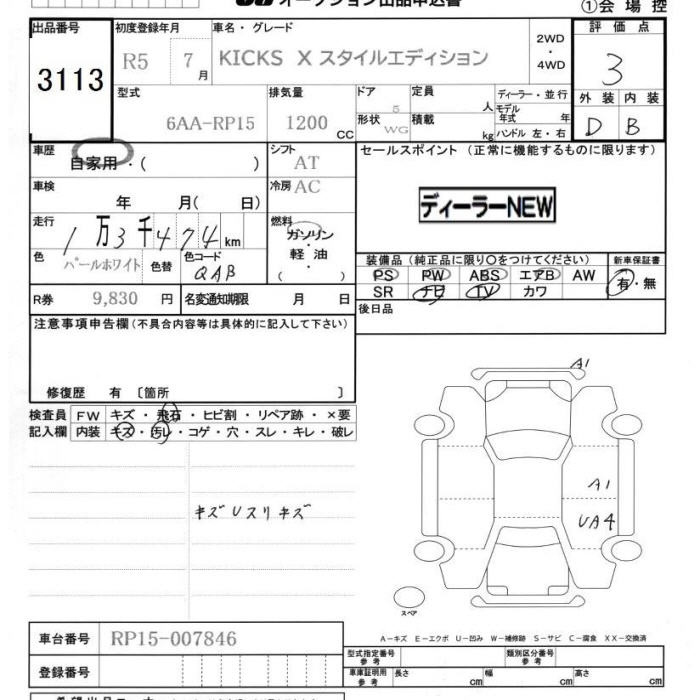 オークション出品申込書
①会場控
出品番号 初度登録年月 車名・グレード 評価点
3113 R5 7月 KICKS X スタイルエディション 2WD・4WD 3
型式 排気量 ドア 定員 ディーラー・並行 外装 内装
6AA-RP15 1200 CC 5 人 モデル年式 年 D B
形状 WG 積載 kg ハンドル 左・右
車歴 シフト セールスポイント (正常に機能するものに限ります)
自家用・( ) AT
車検 冷房 AC
年 月( 日) ディーラーNEW
走行 燃料
1万3千474km ガソリン・軽油・( )
色 パールホワイト 色替 色コード QAB
装備品 (純正品に限り○をつけてください) 新車保証書
PS PW ABS エアB AW 有・無
SR ナビ TV カワ
R券 9,830 円 名変通知期限 月 日
後日品
注意事項申告欄(不具合内容等は具体的に記入して下さい)
修復歴 有 〔箇所 〕
検査員 FW キズ・飛石・ヒビ割・リペア跡・×要
記入欄 内装 キズ・汚レ・コゲ・穴・スレ・キレ・破レ
A1
A1
キズUスリキズ
UA4
スペア
A-キズ E-エクボ U-凹み W-補修跡 S-サビ C-腐食 XX-交換済
車台番号 RP15-007846
型式指定番号 参考 類別区分番号 参考
登録番号
車庫証明用 参考 長さ cm 幅 cm 高さ cm